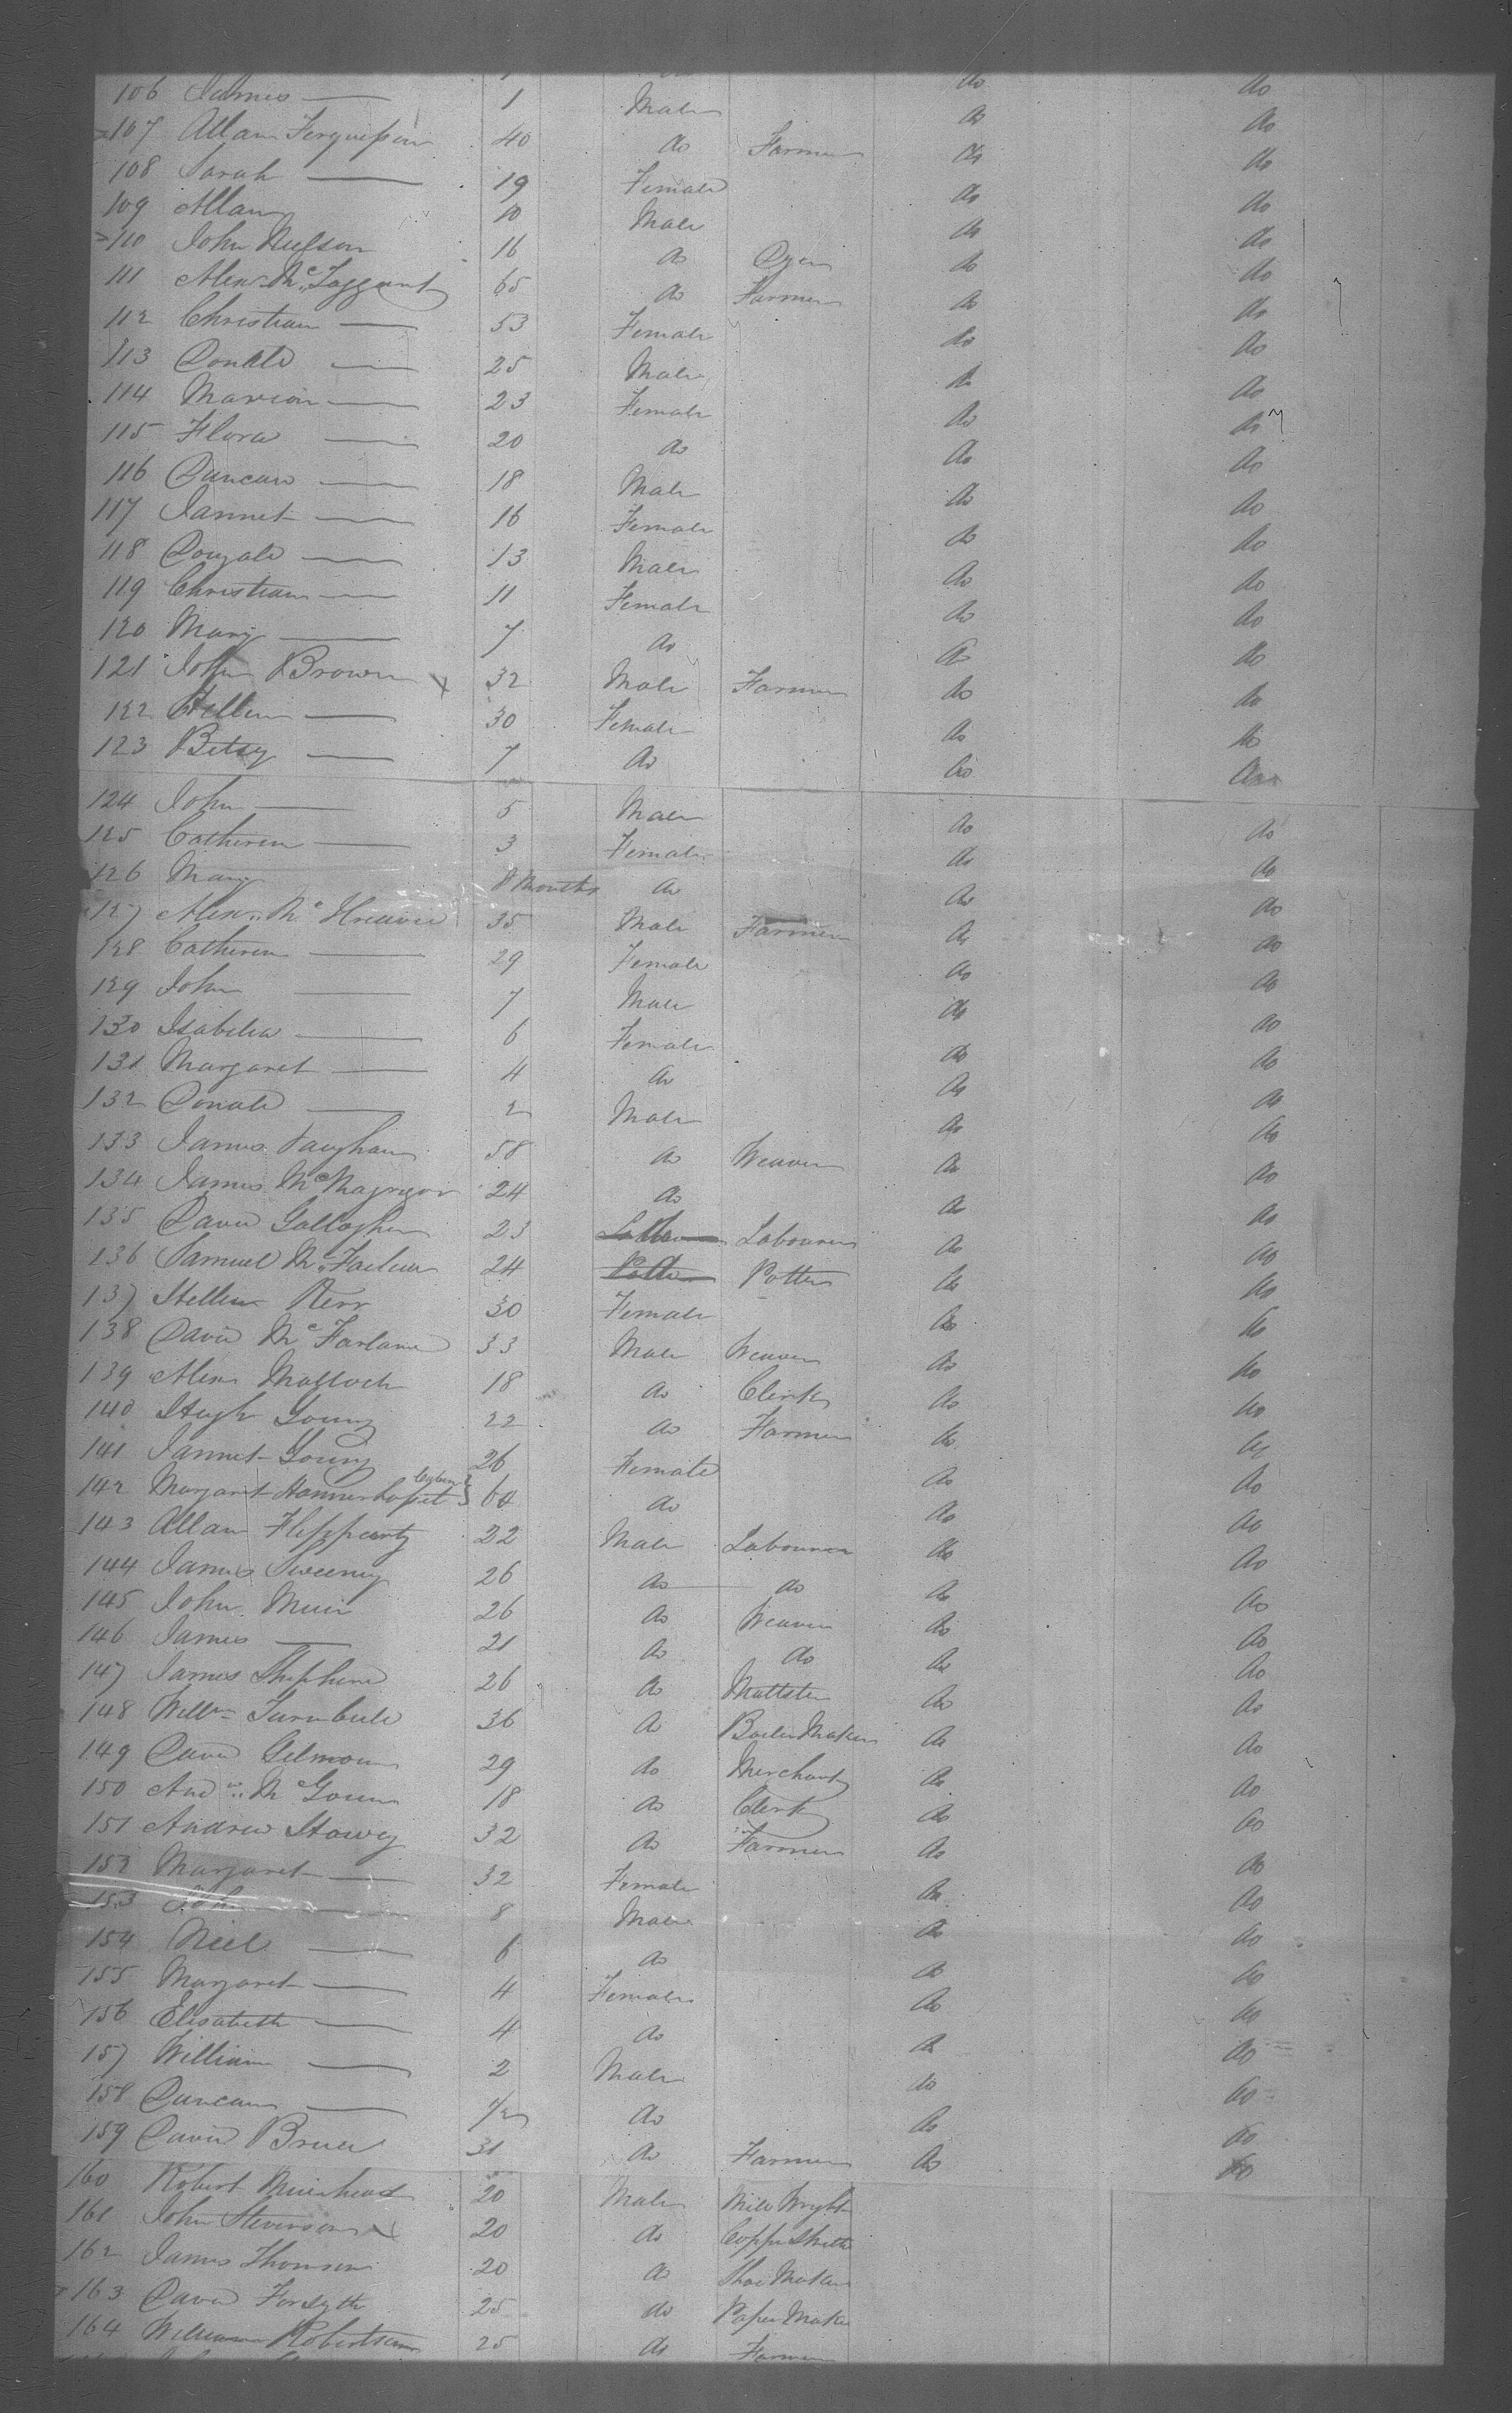 106 James — 1 Male do do
107 Allan Fergusson 40 do Farmer do do
108 Sarah — 19 Female do do
109 Allan 10 Male do do
110 John Neilson 16 do Dyer do do
111 Alexr. McTaggart 65 do Farmer do do
112 Christian — 53 Female do do
113 Donald — 25 Male do do
114 Marion — 23 Female do do
115 Flora — 20 do do do
116 Duncan — 18 Male do do
117 Jannet — 16 Female do do
118 Dougald — 13 Male do do
119 Christian — 11 Female do do
120 Mary — 7 do do do
121 John Brown x 32 Male Farmer do do
122 Hellen — 30 Female do do
123 Betsy — 7 do do do
124 John — 5 Male do do
125 Catheren — 3 Female do do
126 Mary 8 Months do do do
127 Alexr. Mc 35 Male Farmer do do
128 Catheren — 29 Female do do
129 John — 7 Male do do
130 Isabella — 6 Female do do
131 Margaret — 4 do do do
132 Donald — 2 Male do do
133 James Vaughan 58 do Weaver do do
134 James McMagregor 24 do do do
135 David Gallagher 23 Labourer do do
136 Samuel 24 Potter Potter do do
137 Hellen Kerr 30 Female do do
138 David McFarlane 33 Male Weaver do do
139 Alexr Malloch 18 do Clerk do do
140 Hugh Young 22 do Farmer do do
141 Jannet Young 26 Female do do
142 Margaret 60 do do do
143 Allan 22 Male Labourer do do
144 James Sweeney 26 do do do do
145 John Muir 26 do Weaver do do
146 James — 21 do do do do
147 James Shephard 26 do Maltster do do
148 Willm Turnbull 36 do Boiler Maker do do
149 David Gilmour 29 do Merchant do do
150 Andw. McGoun 18 do Clerk do do
151 Andrew Stowey 32 do Farmer do do
152 Margaret — 32 Female do do
153 John — 8 Male do do
154 Neil — 6 do do do
155 Margaret — 4 Female do do
156 Elisabeth — 4 do do do
157 William — 2 Male do do
158 Duncan — 1/2 do do do
159 David Bruce 31 do Farmer do do
160 Robert Muirhead 20 Male Mill Wright
161 John Stevenson x 20 do Copper Smith
162 James Thomson 20 do Shoe Maker
163 David Forsyth 25 do Paper Maker
164 William Robertson 25 do Farmer